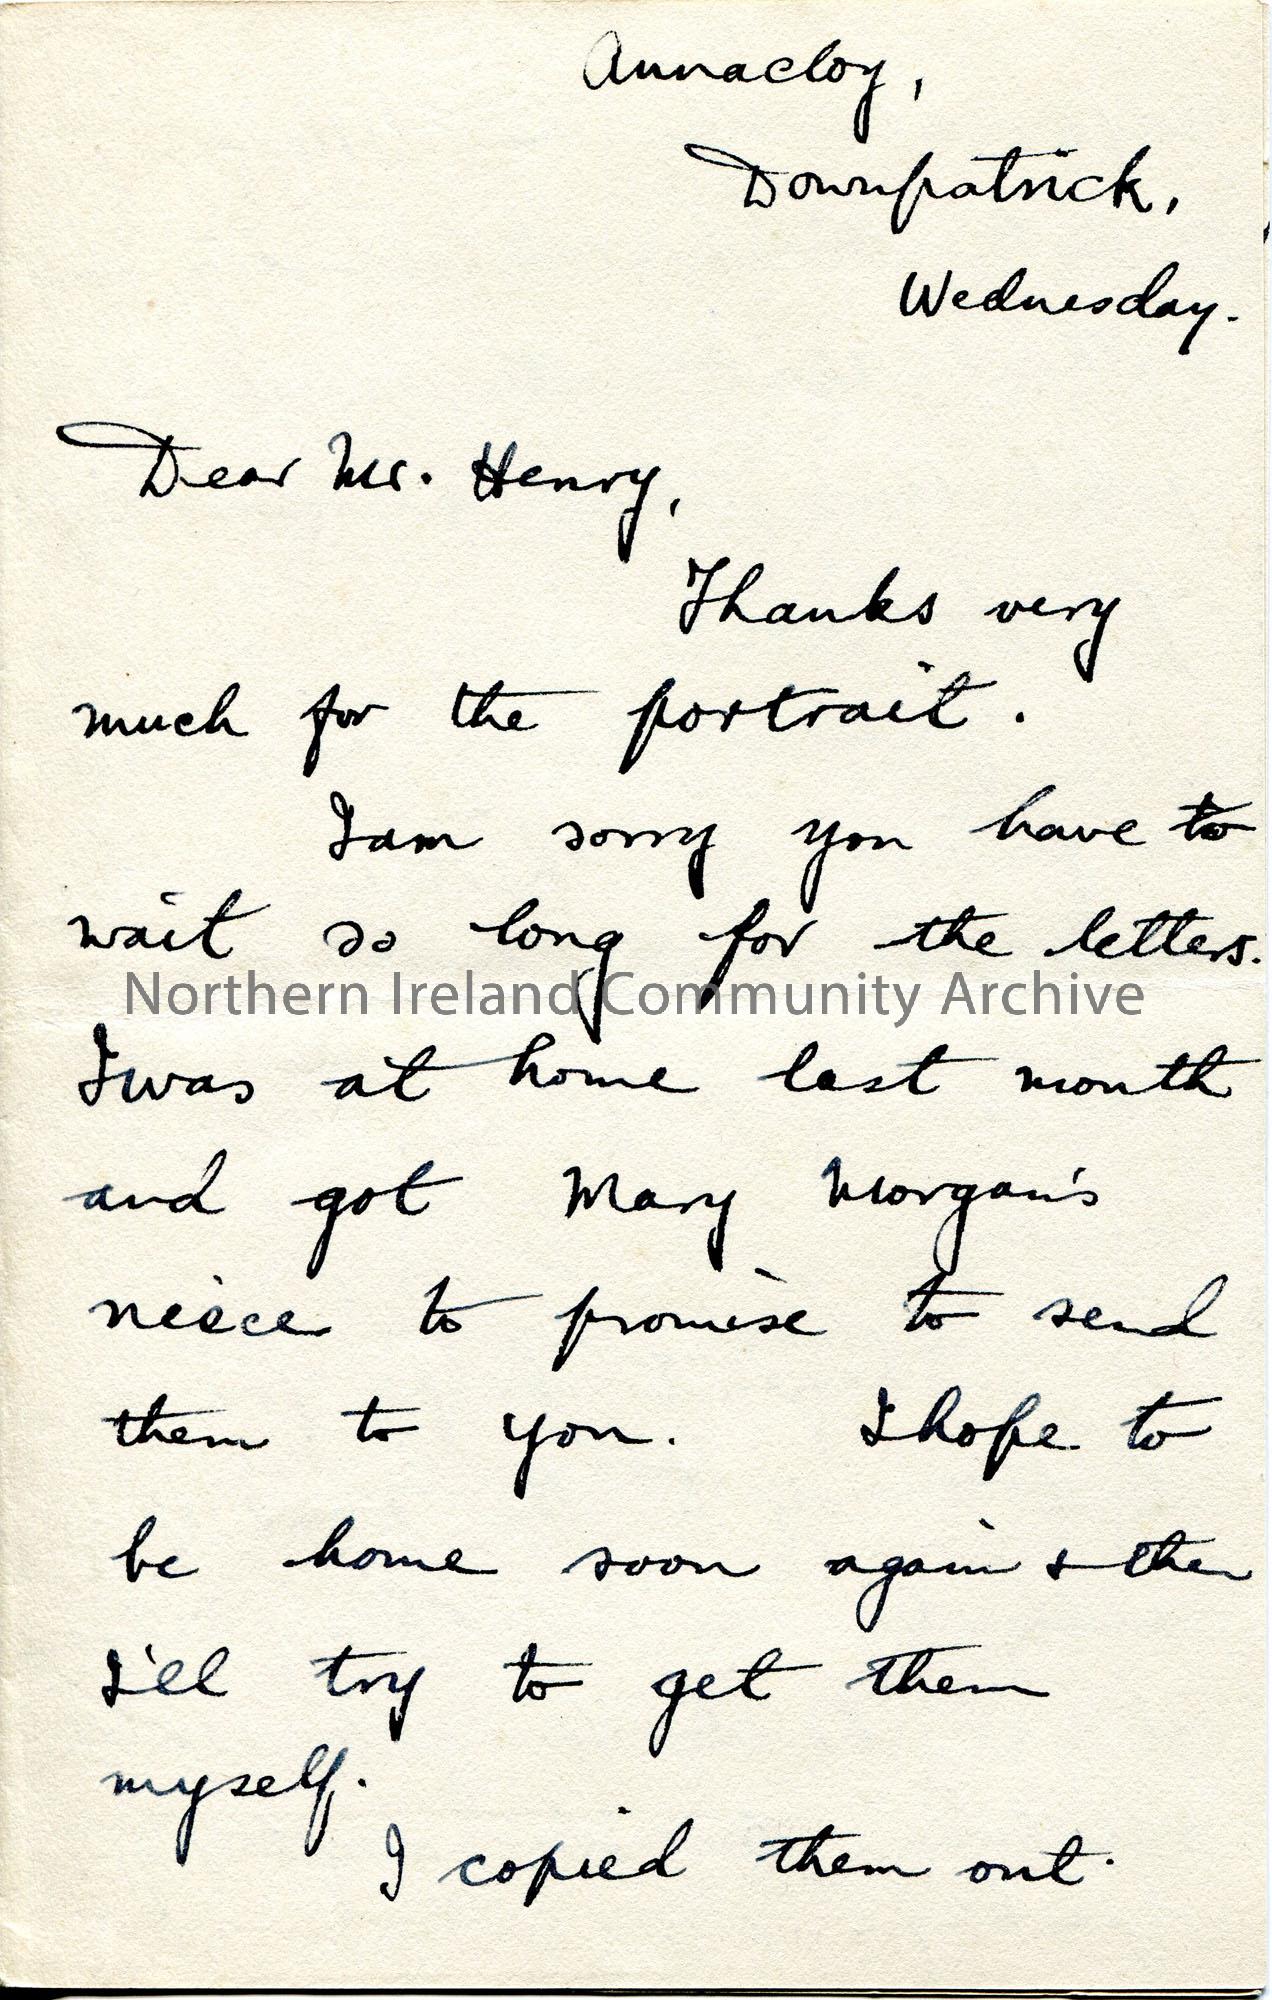 Annacloy,
Downpatrick,
Wednesday.
Dear Mr. Henry,
Thanks very
much for the portrait.
I am sorry you have to
wait so long for the letters.
Northern Ireland Community Archive
I was at home last month
and got Mary Morgan's
neice to promise to send
them to you. I hope to
be home soon again & then
I'll try to get them
myself.
I copied them out.